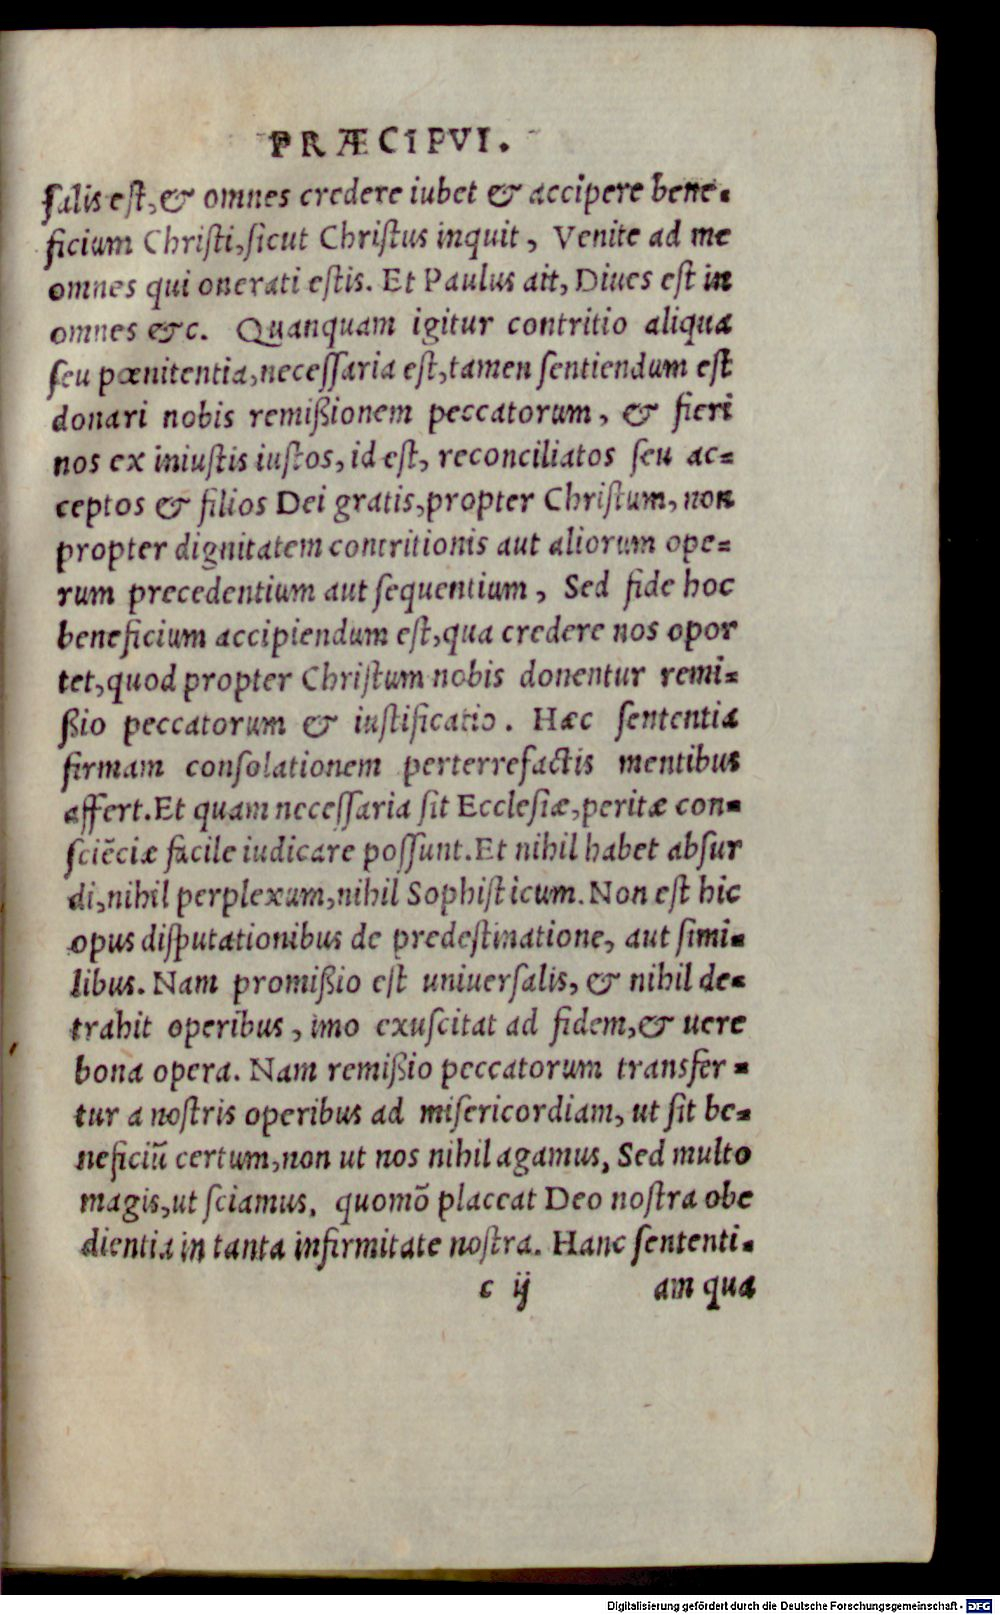 PRÆCIPVI.
ſalis eſt, & omnes credere iubet & accipere bene-
ficium Chriſti, ſicut Chriſtus inquit, Venite ad me
omnes qui onerati eſtis. Et Paulus ait, Diues eſt in
omnes &c. Quanquam igitur contritio aliqua
ſeu pœnitentia, neceſſaria eſt, tamen ſentiendum eſt
donari nobis remißionem peccatorum, & fieri
nos ex iniuſtis iuſtos, id eſt, reconciliatos ſeu ac-
ceptos & filios Dei gratis, propter Chriſtum, non
propter dignitatem contritionis aut aliorum ope-
rum precedentium aut ſequentium, Sed fide hoc
beneficium accipiendum eſt, qua credere nos opor
tet, quod propter Chriſtum nobis donentur remi-
ßio peccatorum & iuſtificatio. Hæc ſententia
firmam conſolationem perterrefactis mentibus
affert. Et quam neceſſaria ſit Eccleſiæ, peritæ con-
ſciẽciæ facile iudicare poſſunt. Et nihil habet abſur
di, nihil perplexum, nihil Sophiſticum. Non eſt hic
opus diſputationibus de predeſtinatione, aut ſimi-
libus. Nam promißio eſt uniuerſalis, & nihil de-
trahit operibus, imo exuſcitat ad fidem, & uere
bona opera. Nam remißio peccatorum transfer-
tur a noſtris operibus ad miſericordiam, ut ſit be-
neficiũ certum, non ut nos nihil agamus, Sed multo
magis, ut ſciamus, quomõ placeat Deo noſtra obe
dientia in tanta infirmitate noſtra. Hanc ſententi-
c ij am qua
Digitalisierung gefördert durch die Deutsche Forschungsgemeinschaft - DFG